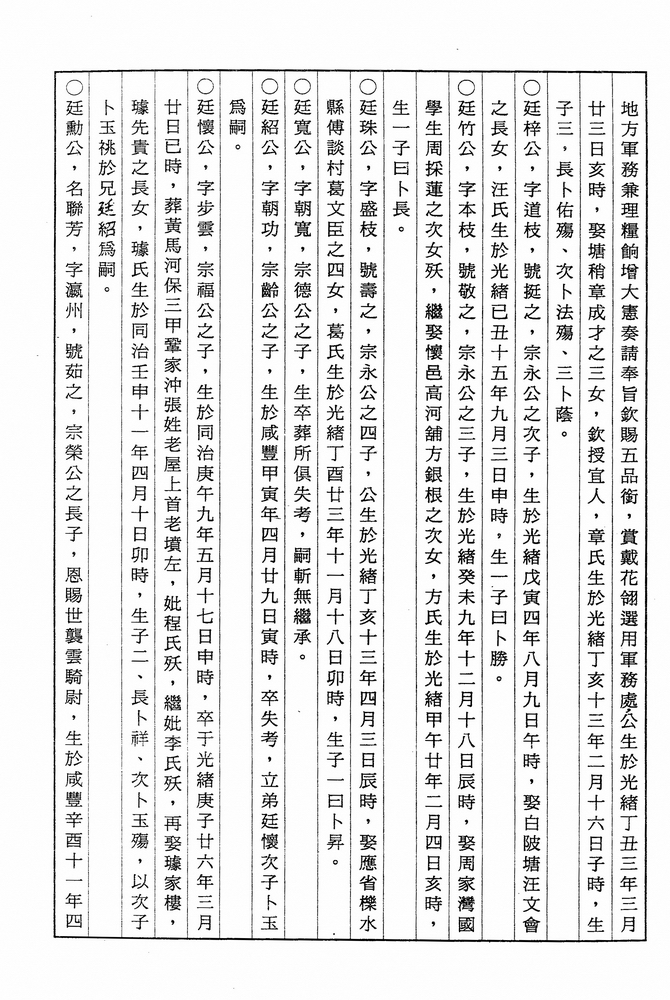 地方軍務兼理糧餉增大憲奏請奉旨欽賜五品銜，賞戴花翎選用軍務處，公生於光緒丁丑三年三月
廿三日亥時，娶塘稍章成才之三女，欽授宜人，章氏生於光緒丁亥十三年二月十六日子時，生
子三，長卜佑殤、次卜法殤、三卜蔭。
○廷梓公，字道枝，號挺之，宗永公之次子，生於光緒戊寅四年八月九日午時，娶白陂塘汪文會
之長女，汪氏生於光緒己丑十五年九月三日申時，生一子曰卜勝。
○廷竹公，字本枝，號敬之，宗永公之三子，生於光緒癸未九年十二月十八日辰時，娶周家灣國
學生周採蓮之次女殀，繼娶懷邑高河舖方銀根之次女，方氏生於光緒甲午廿年二月四日亥時，
生一子曰卜長。
○廷珠公，字盛枝，號壽之，宗永公之四子，公生於光緒丁亥十三年四月三日辰時，娶應省櫟水
縣傅談村葛文臣之四女，葛氏生於光緒丁酉廿三年十一月十八日卯時，生子一曰卜昇。
○廷寬公，字朝寬，宗德公之子，生卒葬所俱失考，嗣斬無繼承。
○廷紹公，字朝功，宗齡公之子，生於咸豐甲寅年四月廿九日寅時，卒失考，立弟廷懷次子卜玉
為嗣。
○廷懷公，字步雲，宗福公之子，生於同治庚午九年五月十七日申時，卒于光緒庚子廿六年三月
廿日巳時，葬黃馬河保三甲鞏家沖張姓老屋上首老墳左，妣程氏殀，繼妣李氏殀，再娶璩家樓，
璩先貴之長女，璩氏生於同治壬申十一年四月十日卯時，生子二、長卜祥、次卜玉殤，以次子
卜玉祧於兄廷紹為嗣。
○廷勳公，名聯芳，字瀛州，號茹之，宗榮公之長子，恩賜世襲雲騎尉，生於咸豐辛酉十一年四